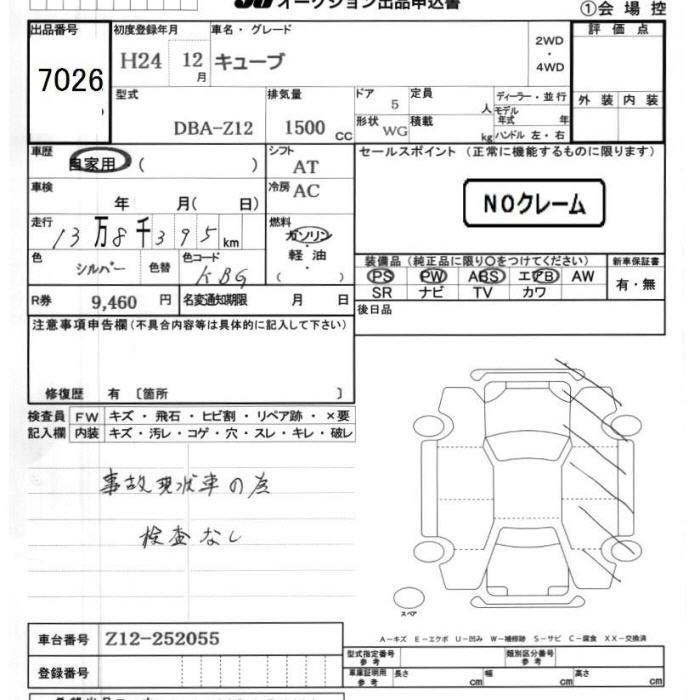 オークション出品申込書
①会場控
出品番号 初度登録年月 車名・グレード 評価点
7026 H24 12月 キューブ 2WD・4WD
型式 排気量 ドア 定員 ディーラー・並行 外装 内装
DBA-Z12 1500cc 5 人 モデル年式 年
形状 WG 積載 kg ハンドル 左・右
車歴 自家用 ( ) シフト AT セールスポイント (正常に機能するものに限ります)
車検 年 月( 日) 冷房 AC NOクレーム
走行 13万8千395km 燃料 ガソリン 軽油 ( )
色 シルバー 色替 色コード KBG
装備品 (純正品に限り〇をつけてください) 新車保証書
PS PW ABS エアB AW 有・無
SR ナビ TV カワ
R券 9,460円 名変通知期限 月 日
後日品
注意事項申告欄 (不具合内容等は具体的に記入して下さい)
修復歴 有 〔箇所 〕
検査員 FW キズ・飛石・ヒビ割・リペア跡・×要
記入欄 内装 キズ・汚レ・コゲ・穴・スレ・キレ・破レ
事故現状車の為
検査なし
スペア
A-キズ E-エクボ U-凹み W-補修跡 S-サビ C-腐食 XX-交換済
車台番号 Z12-252055
型式指定番号 参考 類別区分番号 参考
登録番号
車庫証明用 参考 長さ cm 幅 cm 高さ cm